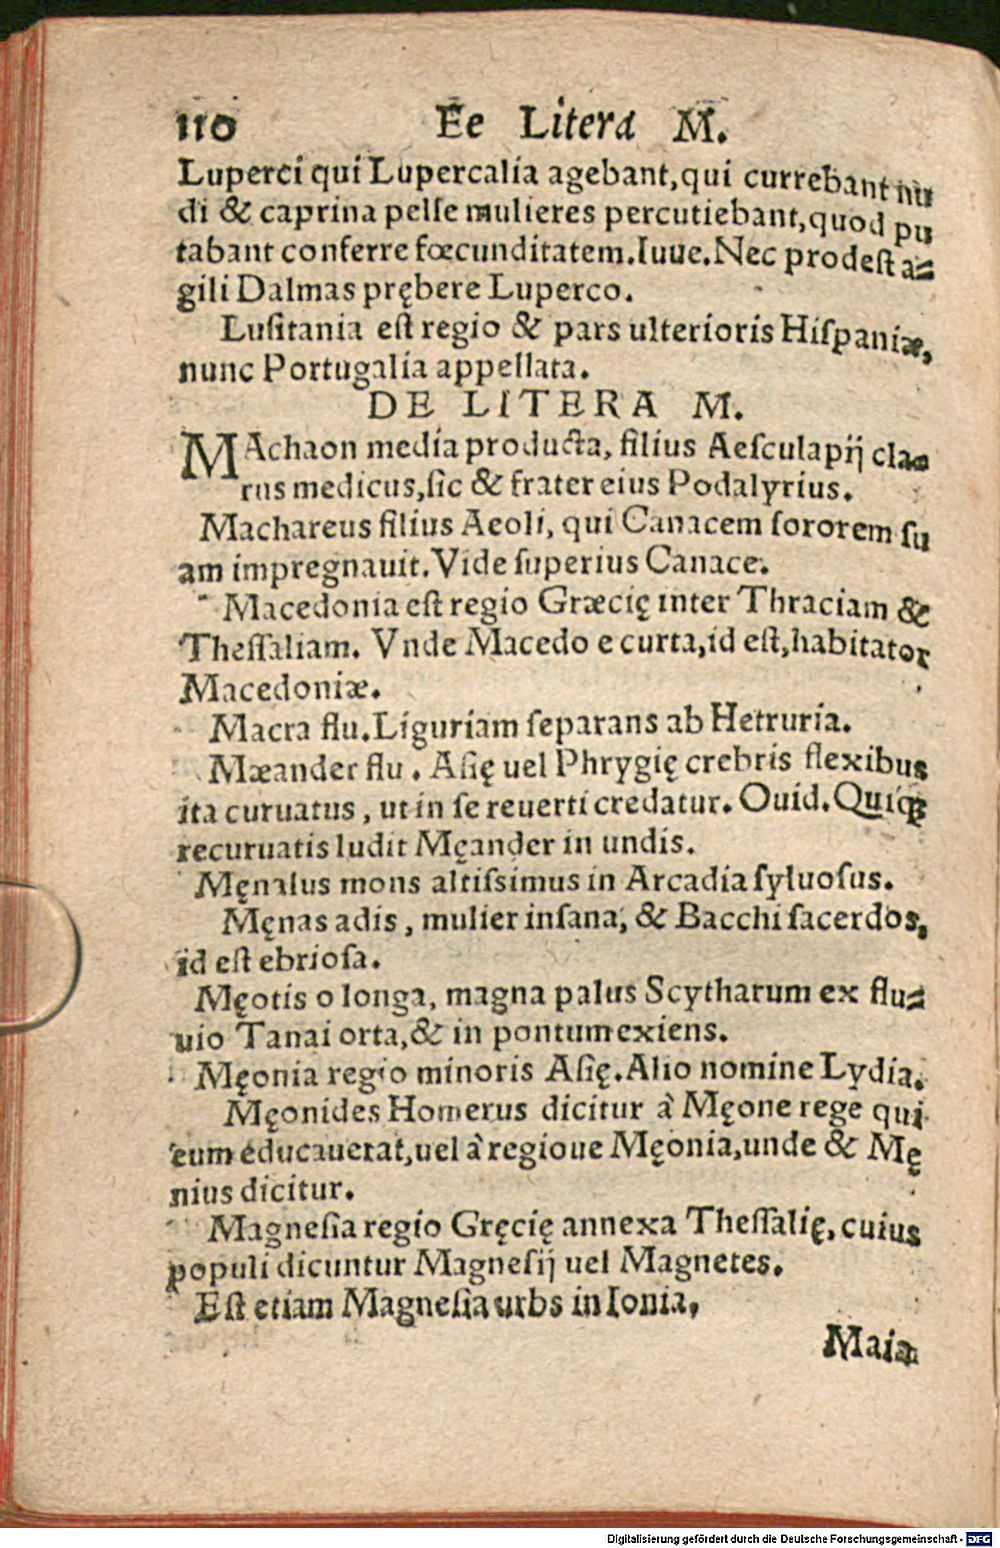 110 Ee Litera M.
Luperci qui Lupercalia agebant, qui currebant nu
di & caprina pelle mulieres percutiebant, quod pu
tabant conferre fœcunditatem. Iuue. Nec prodeſt a⸗
gili Dalmas prębere Luperco.
Luſitania eſt regio & pars ulterioris Hiſpaniæ,
nunc Portugalia appellata.
DE LITERA M.
MAchaon media producta, filius Aeſculapij cla⸗
rus medicus, ſic & frater eius Podalyrius.
Machareus filius Aeoli, qui Canacem ſororem ſu
am impregnauit. Vide ſuperius Canace.
Macedonia eſt regio Græcię inter Thraciam &
Theſſaliam. Vnde Macedo e curta, id eſt, habitator
Macedoniæ.
Macra flu. Liguriam ſeparans ab Hetruria.
Mæander flu. Aſię uel Phrygię crebris flexibus
ita curuatus, ut in ſe reuerti credatur. Ouid. Quiqꝫ
recuruatis ludit Męander in undis.
Męnalus mons altiſsimus in Arcadia ſyluoſus.
Męnas adis, mulier inſana, & Bacchi ſacerdos,
id eſt ebrioſa.
Męotis o longa, magna palus Scytharum ex flu⸗
uio Tanai orta, & in pontum exiens.
Męonia regio minoris Aſię. Alio nomine Lydia.
Męonides Homerus dicitur à Męone rege qui
eum educauerat, uel à regione Męonia, unde & Mę
nius dicitur.
Magneſia regio Gręcię annexa Theſſalię, cuius
populi dicuntur Magneſij uel Magnetes.
Eſt etiam Magneſia urbs in Ionia,
Maia
Digitalisierung gefördert durch die Deutsche Forschungsgemeinschaft - DFG